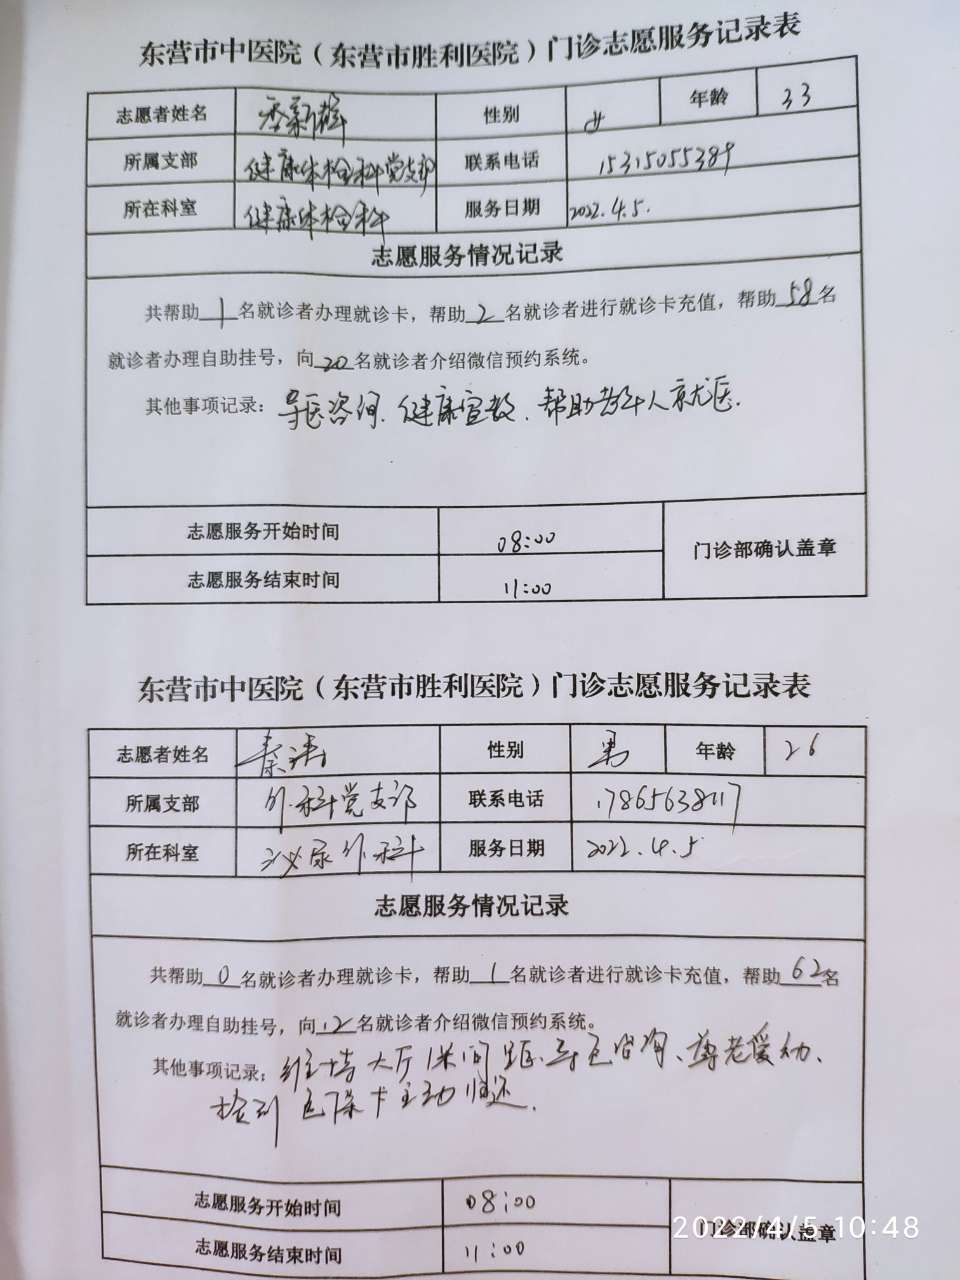 东营市中医院（东营市胜利医院）门诊志愿服务记录表
志愿者姓名 性别 女 年龄 33
所属支部 健康体检科党支部 联系电话 15315055389
所在科室 健康体检科 服务日期 2022.4.5.
志愿服务情况记录
共帮助1名就诊者办理就诊卡，帮助2名就诊者进行就诊卡充值，帮助58名
就诊者办理自助挂号，向20名就诊者介绍微信预约系统。
其他事项记录：导医咨询、健康宣教、帮助老年人就医.
志愿服务开始时间 08:00
门诊部确认盖章
志愿服务结束时间 11:00
东营市中医院（东营市胜利医院）门诊志愿服务记录表
志愿者姓名 秦涛 性别 男 年龄 26
所属支部 外科党支部 联系电话
所在科室 泌尿外科 服务日期 2022.4.5
志愿服务情况记录
共帮助0名就诊者办理就诊卡，帮助1名就诊者进行就诊卡充值，帮助62名
就诊者办理自助挂号，向12名就诊者介绍微信预约系统。
其他事项记录：维持大厅保间距、导医咨询、尊老爱幼、
捡到医保卡主动归还.
志愿服务开始时间 08:00
门诊部确认盖章
志愿服务结束时间 11:00
2022/4/5 10:48